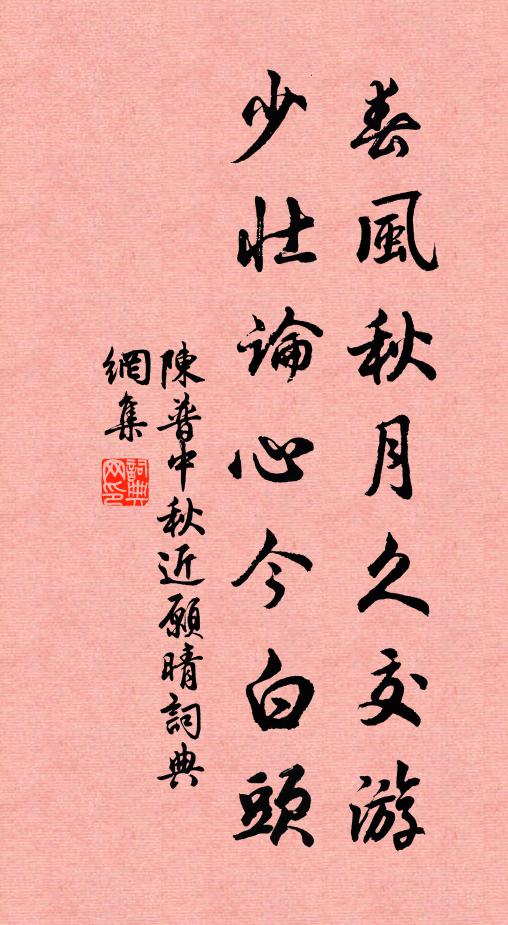 春風秋月久交游
少壯論心今白頭
陳普中秋近願晴詞典
網集
詞典
网印